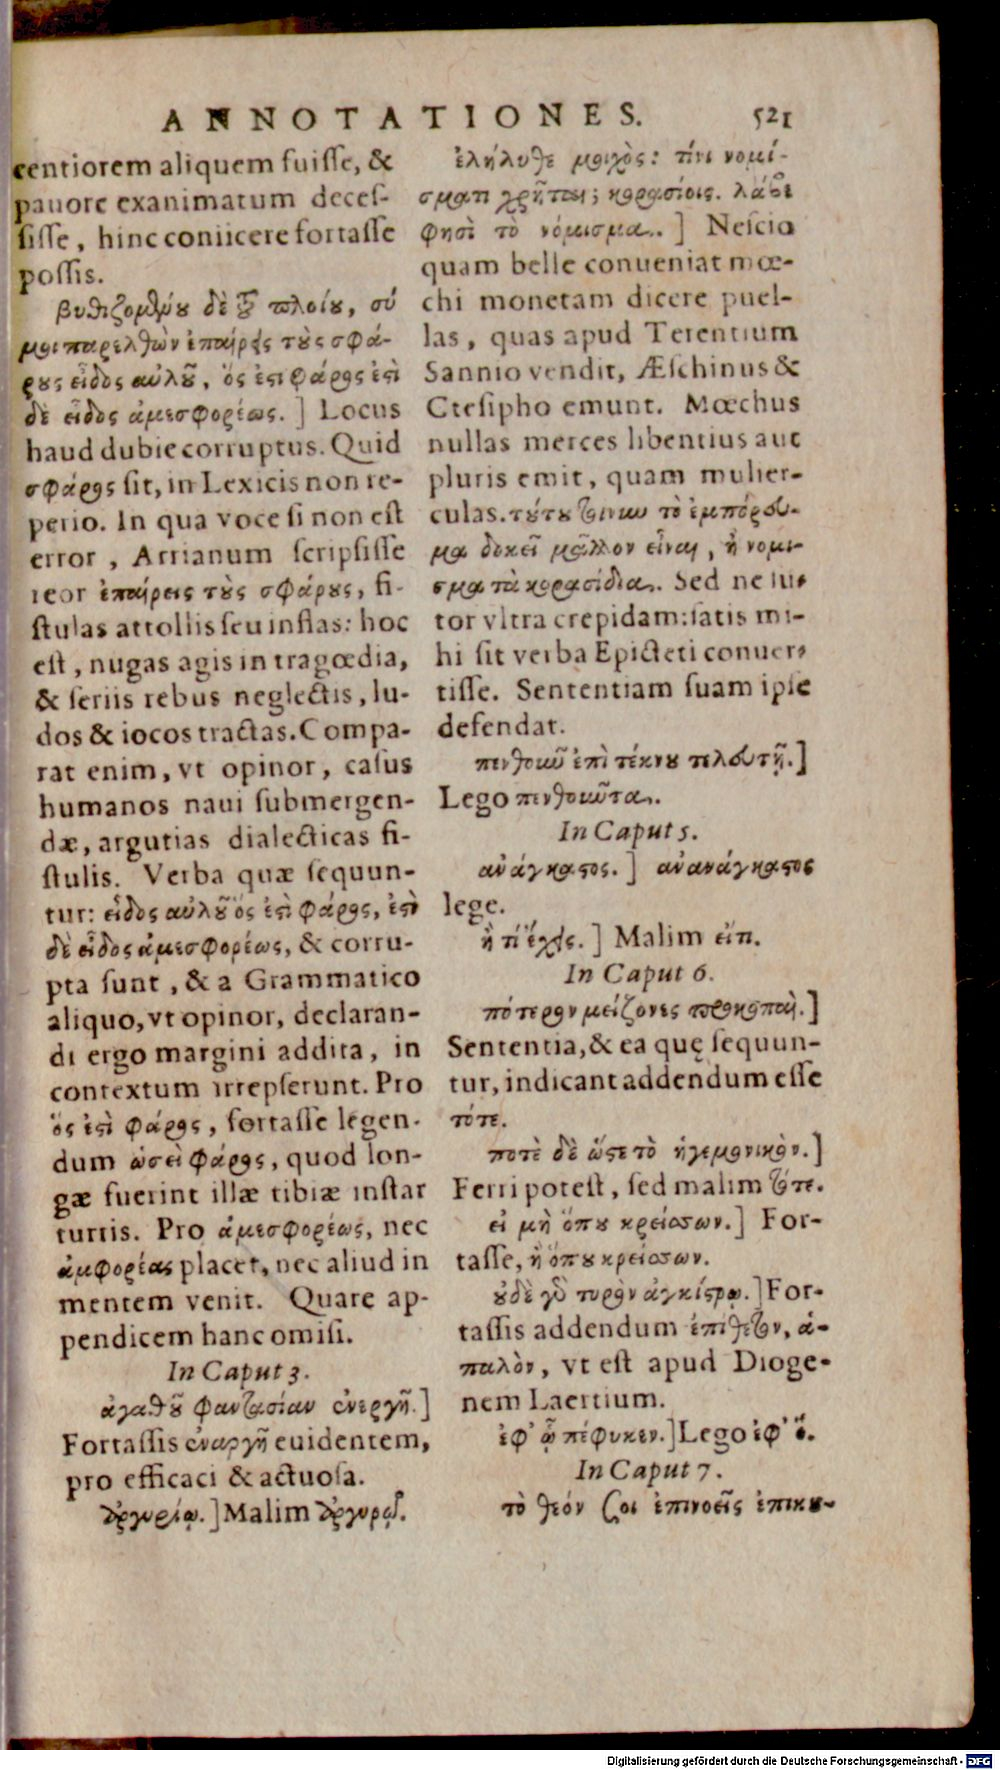 ANNOTATIONES. 521
centiorem aliquem fuisse, &
pauore exanimatum deces-
sisse, hinc coniicere fortasse
possis.
βυθιζομένου δὲ τοῦ πλοίου, σύ
μοι παρελθὼν ἐπαίρεις τοὺς σφά-
ρους εἶδος αὐλοῦ, ὅς ἐστι φάρος ἐστὶ
δὲ εἶδος ἀμεσφορέως.] Locus
haud dubie corruptus. Quid
σφάρος sit, in Lexicis non re-
perio. In qua voce si non est
error, Arrianum scripsisse
reor ἐπαίρεις τοὺς σφάρους, fi-
stulas attollis seu inflas: hoc
est, nugas agis in tragœdia,
& seriis rebus neglectis, lu-
dos & iocos tractas. Compa-
rat enim, vt opinor, casus
humanos naui submergen-
dæ, argutias dialecticas fi-
stulis. Verba quæ sequun-
tur: εἶδος αὐλοῦ ὅς ἐστὶ φάρος, ἐστὶ
δὲ εἶδος ἀμεσφορέως, & corru-
pta sunt, & a Grammatico
aliquo, vt opinor, declaran-
di ergo margini addita, in
contextum irrepserunt. Pro
ὅς ἐστὶ φάρος, fortasse legen-
dum ὡσεὶ φάρος, quod lon-
gæ fuerint illæ tibiæ instar
turris. Pro ἀμεσφορέως, nec
ἀμφορέας placet, nec aliud in
mentem venit. Quare ap-
pendicem hanc omisi.
In Caput 3.
ἀγαθοῦ φαντασίαν ἐνεργῆ.]
Fortassis ἐναργῆ euidentem,
pro efficaci & actuosa.
ἀργυρίῳ.] Malim ἀργυρῷ.
ἐλήλυθε μοιχὸς: τίνι νομί-
σματι χρῆται; κορασίοις. λάβε
φησὶ τὸ νόμισμα.] Nescio
quam belle conueniat mœ-
chi monetam dicere puel-
las, quas apud Terentium
Sannio vendit, Æschinus &
Ctesipho emunt. Mœchus
nullas merces libentius aut
pluris emit, quam mulier-
culas. τούτου τοίνυν τὸ ἐμπόρευ-
μα δοκεῖ μᾶλλον εἶναι, ἢ νομι-
σμα τὰ κορασίδια. Sed ne su-
tor vltra crepidam: satis mi-
hi sit verba Epicteti conuer-
tisse. Sententiam suam ipse
defendat.
πενθοῦν ἐπὶ τέκνου τελευτῇ.]
Lego πενθοῦντα.
In Caput 5.
ἀνάγκατος.] ἀνανάγκατος
lege.
ἢ τί ἔχῃς.] Malim εἴπ.
In Caput 6.
πότερον μείζονες προκοπαὶ.]
Sententia, & ea quę sequun-
tur, indicant addendum esse
τότε.
ποτὲ δὲ ὥστε τὸ ἡγεμονικὸν.]
Ferri potest, sed malim τότε.
εἰ μὴ ὅπου κρείσσων.] For-
tasse, ἢ ὅπου κρείσσων.
οὐδὲ γὰρ τυρὸν ἀγκίστρῳ.] For-
tassis addendum ἐπίθετον, ἁ-
παλὸν, vt est apud Dioge-
nem Laertium.
ἐφ' ᾧ πέφυκεν.] Lego ἐφ' ὅ.
In Caput 7.
τὸ θεόν σοι ἐπινοεῖς ἐπικου-
Digitalisierung gefördert durch die Deutsche Forschungsgemeinschaft - DFG